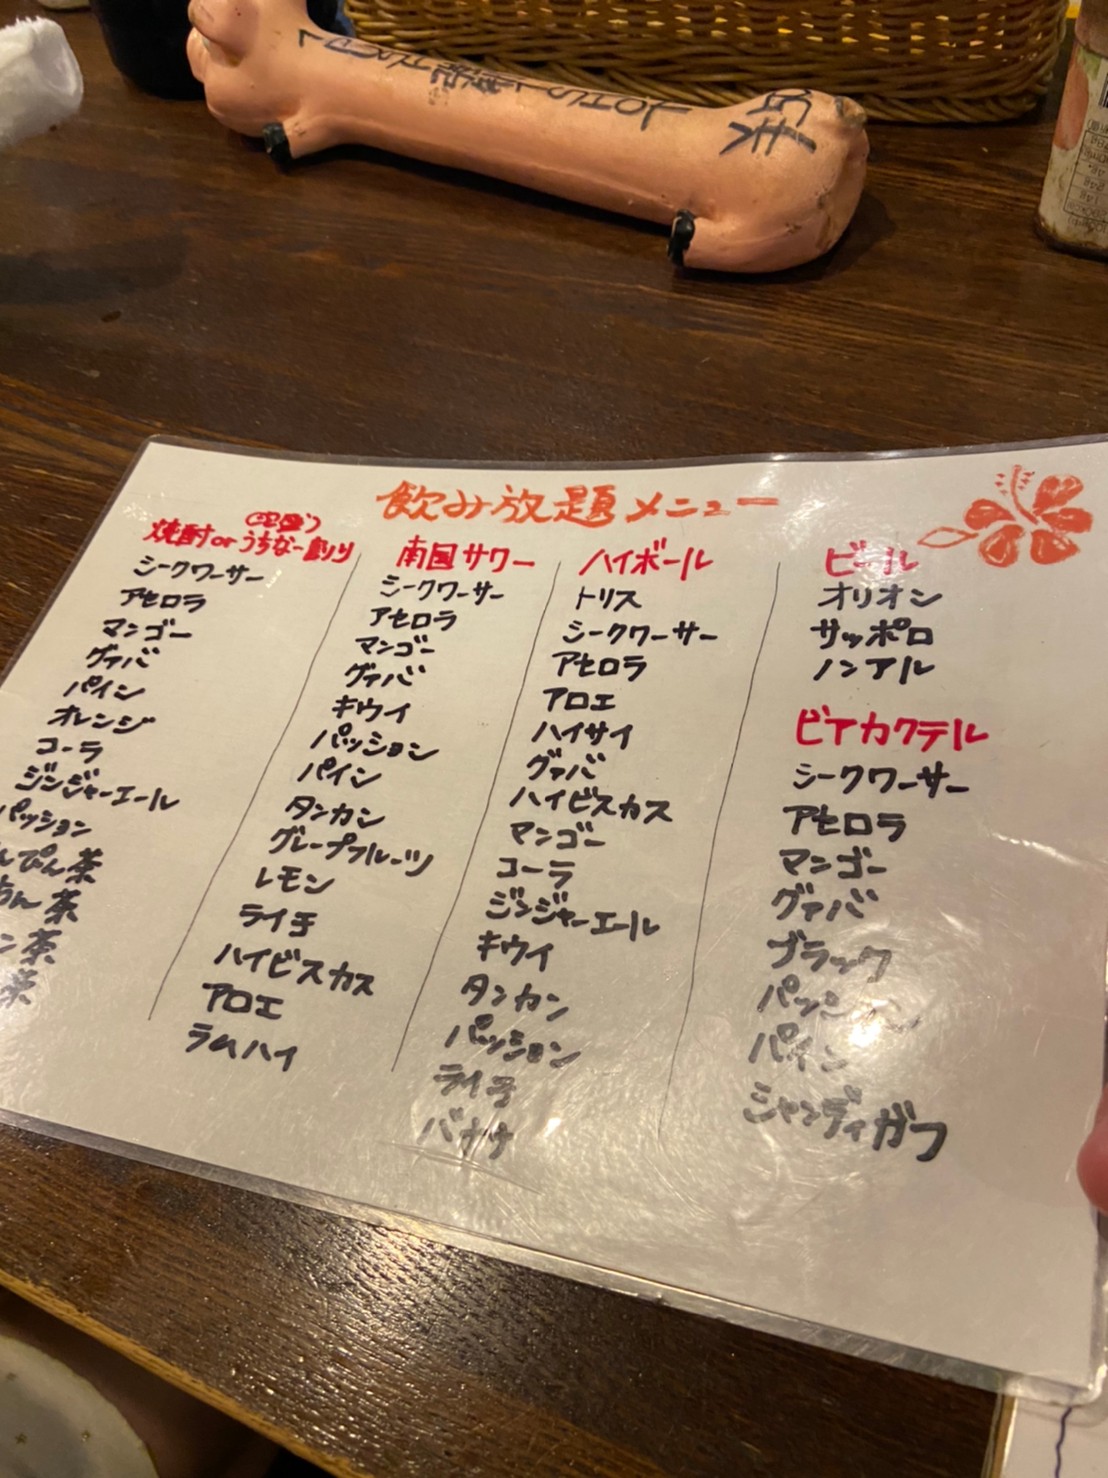 飲み放題メニュー
焼酎orうちなー割り
シークワーサー
アセロラ
マンゴー
グァバ
パイン
オレンジ
コーラ
ジンジャーエール
パッション
んぴん茶
茶
茶
茶
南国サワー
シークワーサー
アセロラ
マンゴー
グァバ
キウイ
パッション
パイン
タンカン
グレープフルーツ
レモン
ライチ
ハイビスカス
アロエ
ラムハイ
ハイボール
トリス
シークワーサー
アセロラ
アロエ
ハイサイ
グァバ
ハイビスカス
マンゴー
コーラ
ジンジャーエール
キウイ
タンカン
パッション
ライチ
バナナ
ビール
オリオン
サッポロ
ノンアル
ビアカクテル
シークワーサー
アセロラ
マンゴー
グァバ
ブラック
パッション
パイン
シャンディガフ